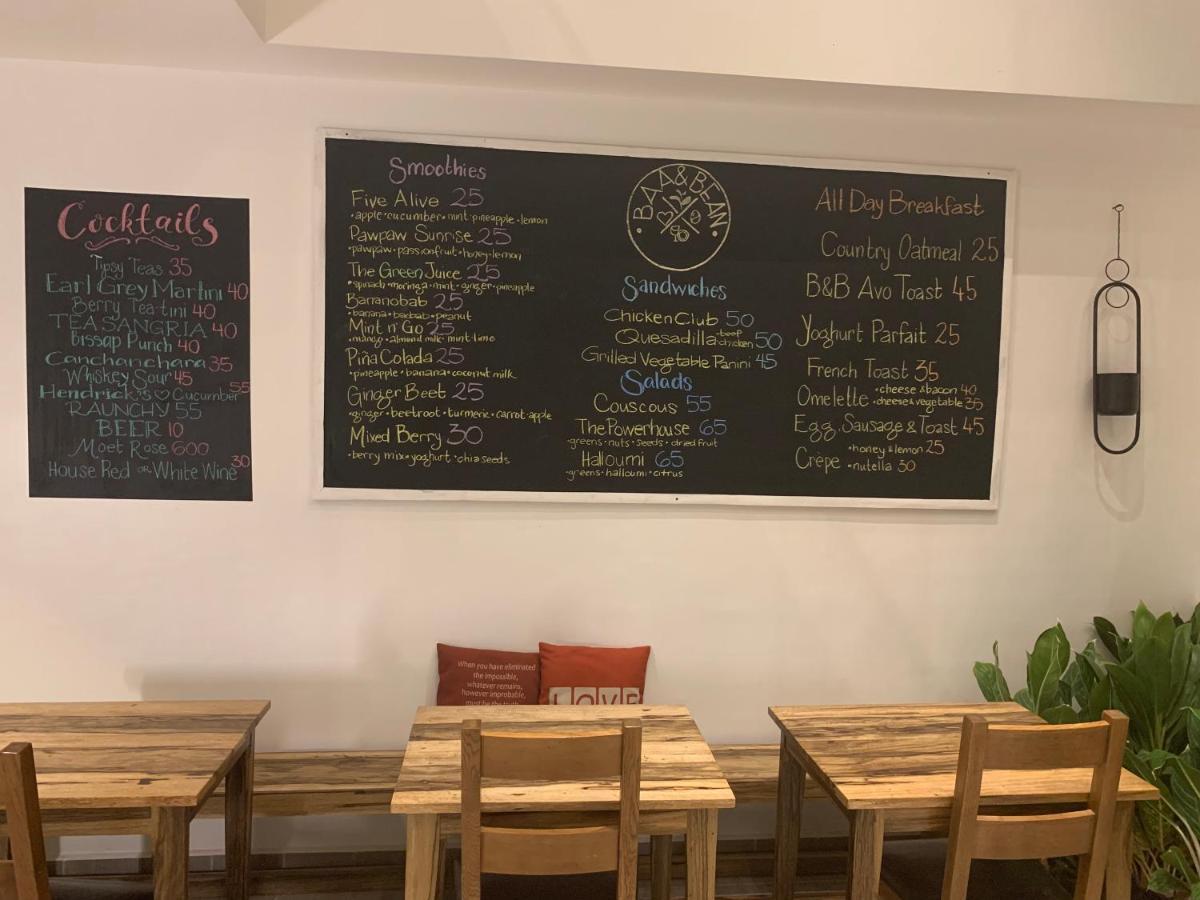 Cocktails
Tipsy Teas 35
Earl Grey Martini 40
Berry Tea-tini 40
TEA SANGRIA 40
Bissap Punch 40
Canchanchara 35
Whiskey Sour 45
Hendrick's ♡ Cucumber 55
RAUNCHY 55
BEER 10
Moet Rose 600
House Red OR White Wine 30
Smoothies
Five Alive 25
•apple•cucumber•mint•pineapple•lemon
Pawpaw Sunrise 25
•pawpaw•passionfruit•honey•lemon
The Green Juice 25
•spinach•moringa•mint•ginger•pineapple
Bananobab 25
•banana•baobab•peanut
Mint n' Go 25
•mango•almond milk•mint•lime
Piña Colada 25
•pineapple•banana•coconut milk
Ginger Beet 25
•ginger•beetroot•turmeric•carrot•apple
Mixed Berry 30
•berry mix•yoghurt•chia seeds
BAA&BEAN
Sandwiches
Chicken Club 50
Quesadilla •beef •chicken 50
Grilled Vegetable Panini 45
Salads
Couscous 55
The Powerhouse 65
•greens•nuts•seeds•dried fruit
Halloumi 65
•greens•halloumi•citrus
All Day Breakfast
Country Oatmeal 25
B&B Avo Toast 45
Yoghurt Parfait 25
French Toast 35
Omelette •cheese & bacon 40
•cheese & vegetable 35
Egg, Sausage & Toast 45
Crêpe •honey & lemon 25
•nutella 30
When you have eliminated
the impossible,
whatever remains,
however improbable,
must be the truth
LOVE